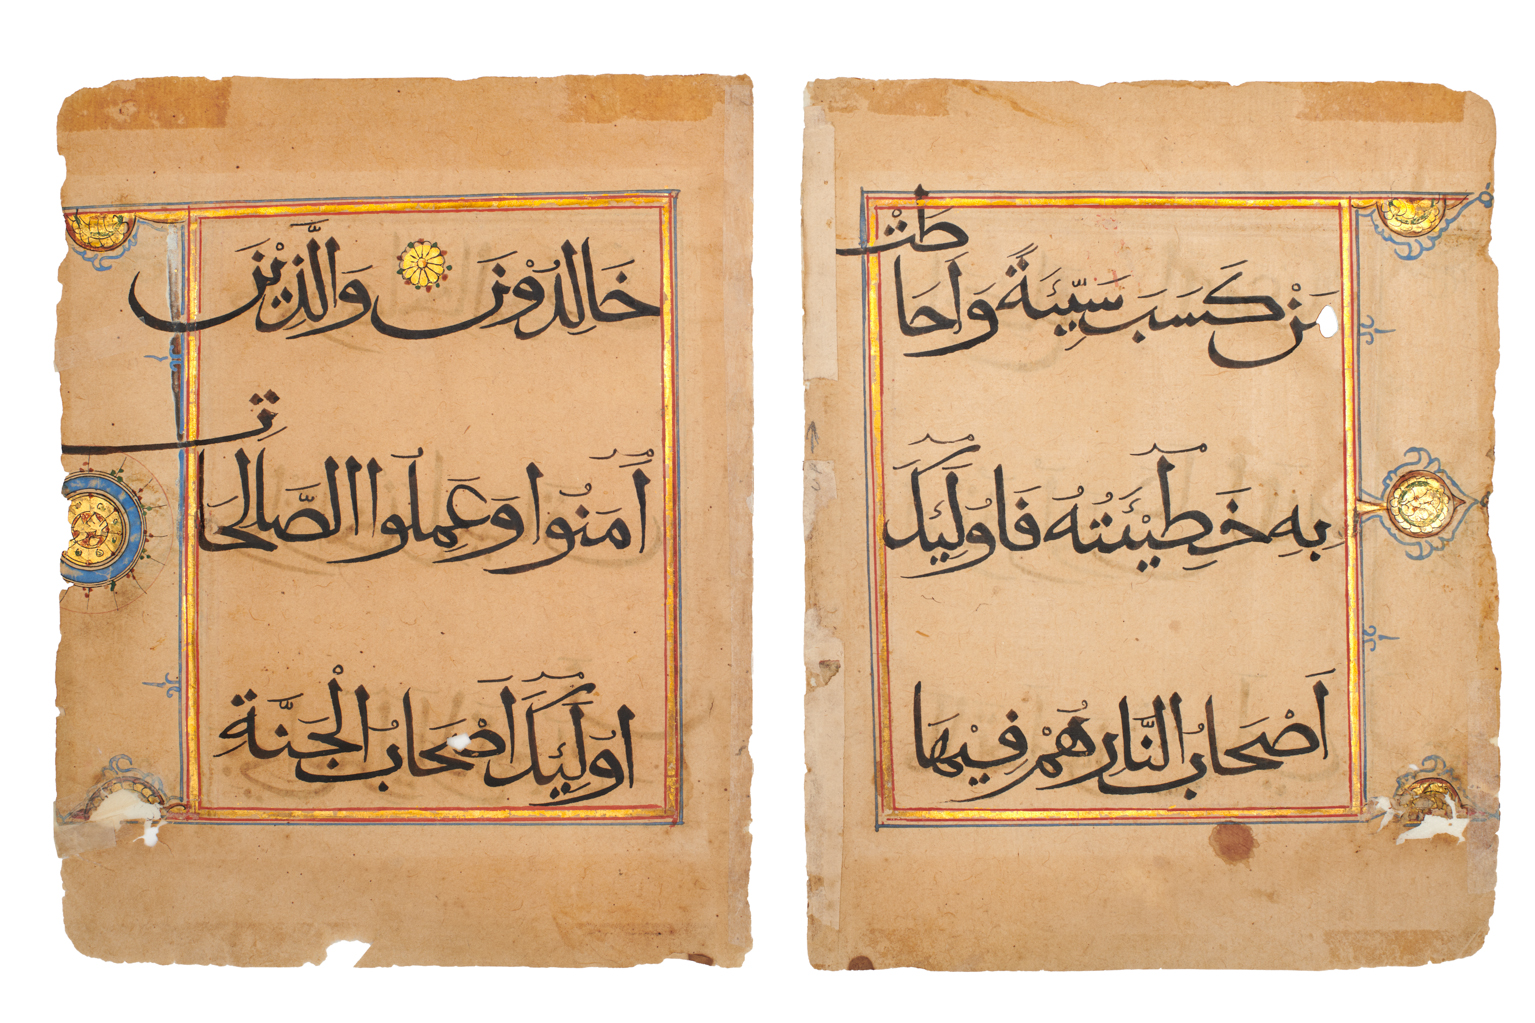 مَنْ كَسَبَ سَيِّئَةً وَاَحَاطَتْ
بِهِ خَطِيْئَتُهُ فَاُولَئِكَ
اَصْحَابُ النَّارِ هُمْ فِيْهَا
خَالِدُوْنَ وَالَّذِيْنَ
اٰمَنُوا وَعَمِلُوا الصَّالِحَاتِ
اُولَئِكَ اَصْحَابُ الْجَنَّةِ